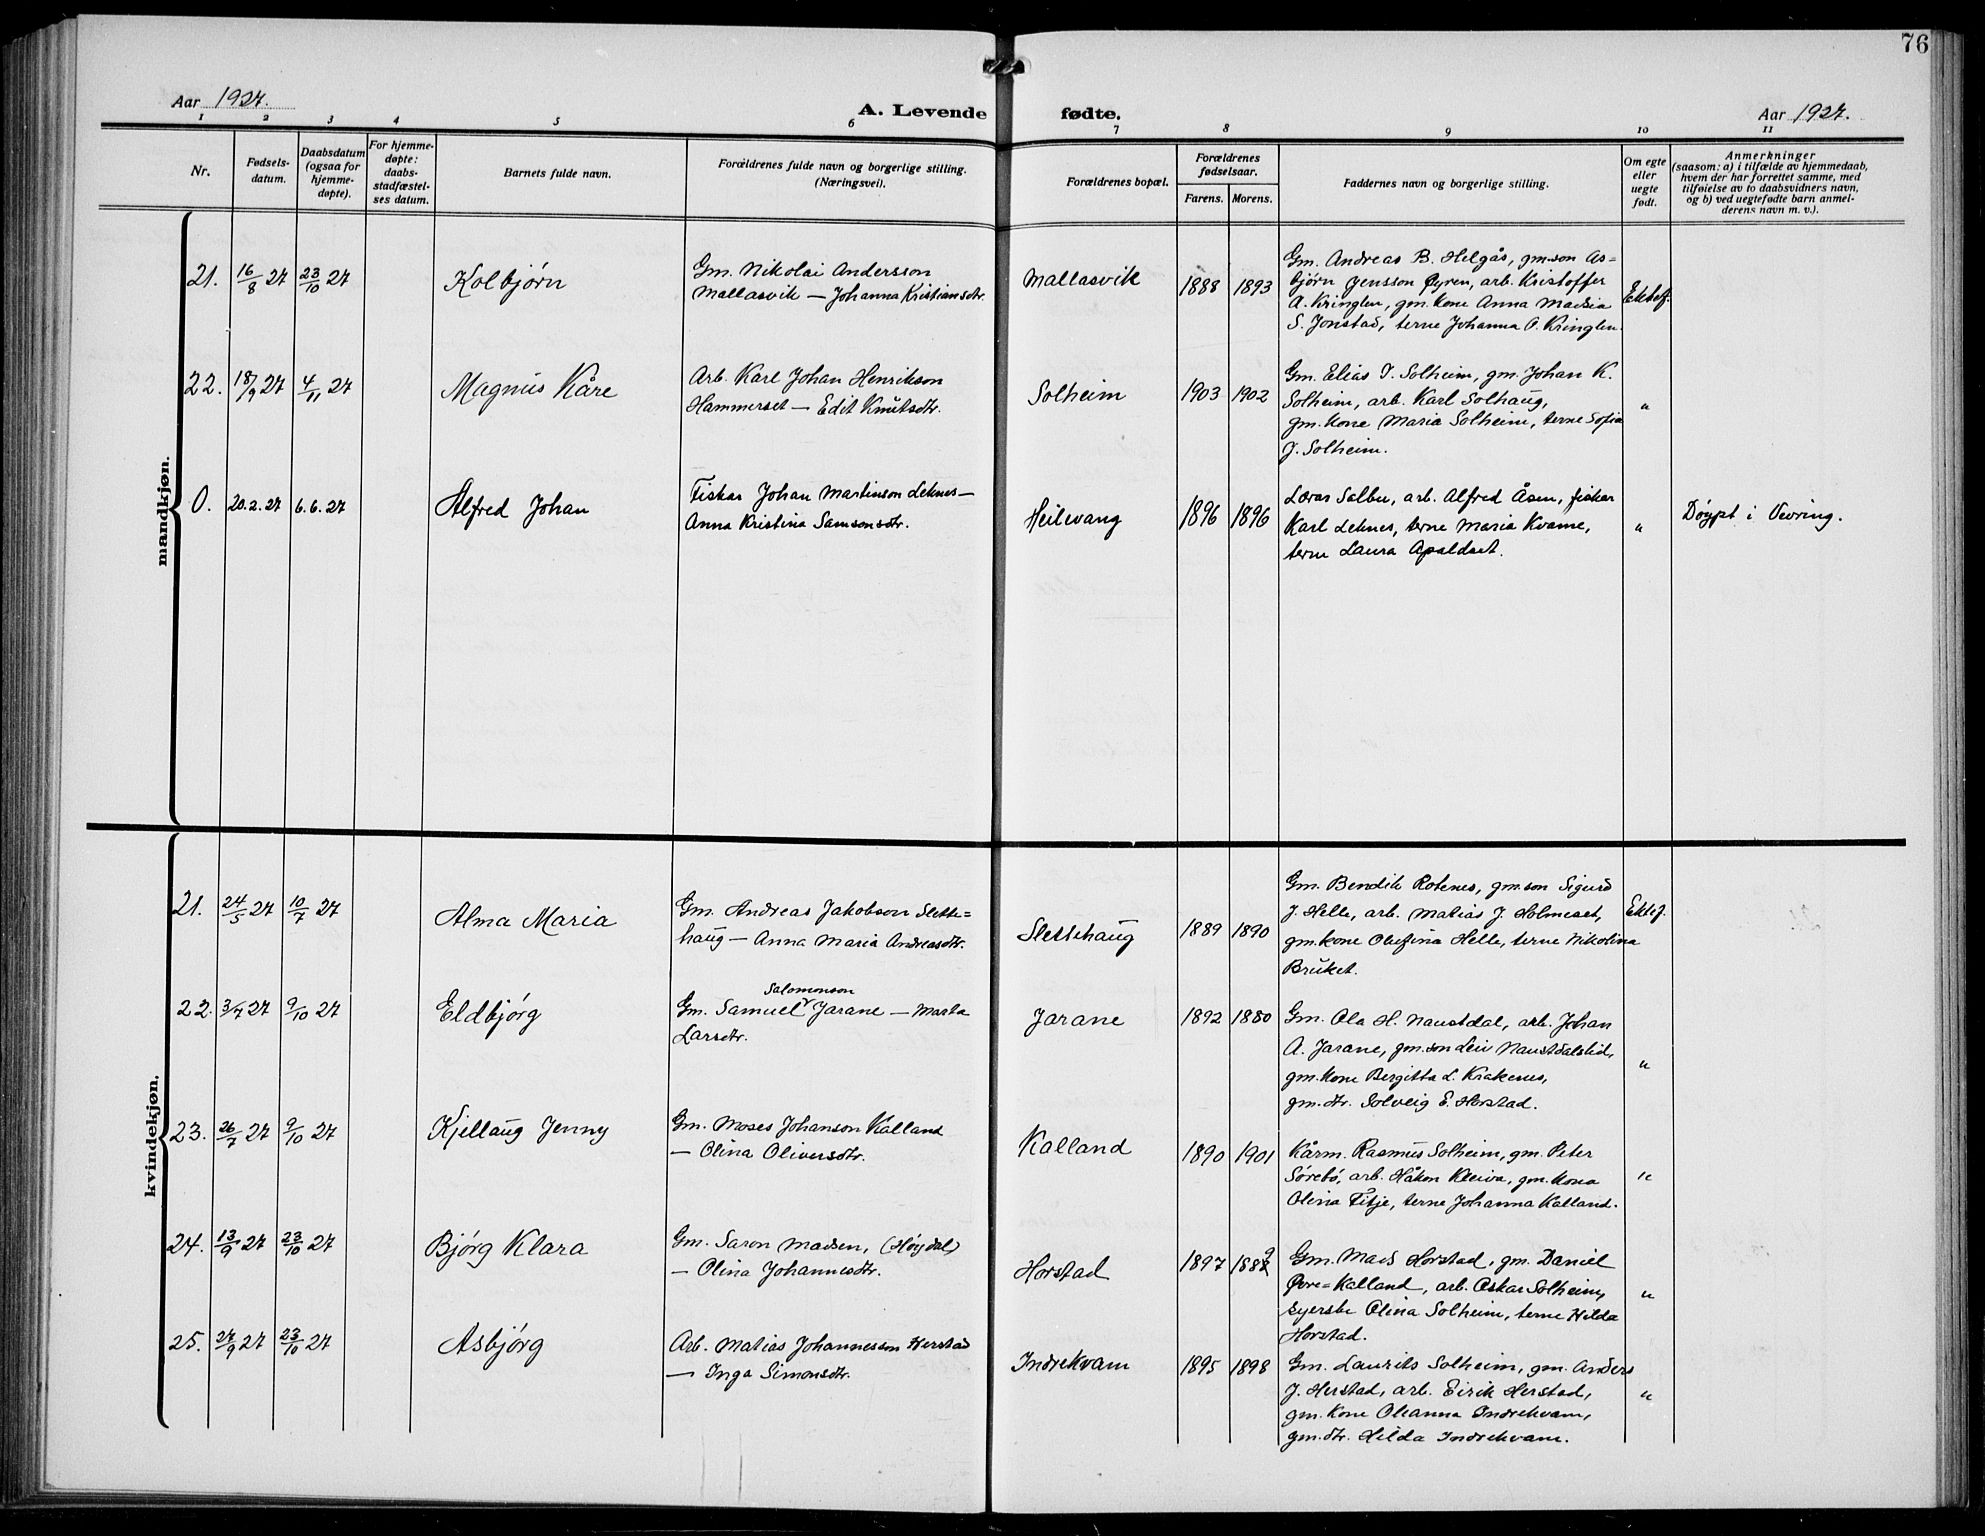 76
Aar 1927.
A. Levende fødte.
Aar 1927.
1 2 3 4 5 6 7 8 9 10 11
Nr.
Fødsels-
datum.
Daabsdatum
(ogsaa for
hjemme-
døpte).
For hjemme-
døpte:
daabs-
stadfæstel-
ses datum.
Barnets fulde navn.
Forældrenes fulde navn og borgerlige stilling.
(Næringsvei).
Forældrenes bopæl.
Forældrenes
fødselsaar.
Farens. Morens.
Faddernes navn og borgerlige stilling.
Om egte
eller
uegte
født.
Anmerkninger
(saasom: a) i tilfælde av hjemmedaab,
hvem der har forrettet samme, med
tilføielse av to daabsvidners navn,
og b) ved uegtefødte barn anmel-
derens navn m. v.).
mandkjøn.
21. 16/8 27 23/10 27 Kolbjørn
Gm. Nikolai Andersson
Mallasvik — Johanna Kristiansdtr.
Mallasvik 1888 1893
Gm. Andreas B. Helgås, gm.son As=
bjørn Jensson Øyren, arb. Kristoffer
A. Kringlen, gm. kone Anna Madsia
S. Jonstad, terne Johanna O. Kringlen.
Ektef.
22. 18/9 27 4/11 27 Magnus Kåre
Arb. Karl Johan Henrikson
Hammerset — Edit Knutsdtr.
Solheim 1903 1902
Gm. Elias I. Solheim, gm. Johan K.
Solheim, arb. Karl Solhaug,
gm. kone Maria Solheim, terne Sofia
J. Solheim.
"
0. 20.2.27 6.6.27 Alfred Johan
Fiskar Johan Martinson Leknes —
Anna Kristina Samsonsdtr.
Heilevang 1896 1896
Lærar Salbu, arb. Alfred Åsen, fiskar
Karl Leknes, terne Maria Kvame,
terne Laura Apaldset.
"
Døypt i Vevring.
kvindekjøn.
21. 24/5 27 10/7 27 Alma Maria
Gm. Andreas Jakobson Slette=
haug — Anna Maria Andreasdtr.
Slettehaug 1889 1890
Gm. Bendik Rotenes, gm.son Sigurd
J. Helle, arb. Matias J. Holmeset,
gm. kone Olufina Helle, terne Nikolina
Bruket.
Ektef.
22. 3/7 27 9/10 27 Eldbjørg
Salomonson
Gm. Samuel Jarane — Marta
Larsdtr.
Jarane 1892 1880
Gm. Ola H. Naustdal, arb. Johan
A. Jarane, gm.son Leiv Naustdalslid,
gm. kone Bergitta L. Krakenes,
gm. dtr. Solveig E. Horstad.
"
23. 26/7 27 9/10 27 Kjellaug Jenny
Gm. Moses Johanson Kalland
— Olina Oliversdtr.
Kalland 1890 1901
Kårm. Rasmus Solheim, gm. Peter
Sørebø, arb. Håkon Kleiva, gm. kona
Olina Fitje, terne Johanna Kalland.
"
24. 13/9 27 23/10 27 Bjørg Klara
Gm. Saron Madsen, (Høydal)
— Olina Johannesdtr.
Horstad 1897 1889
Gm. Mads Horstad, gm. Daniel
Øvre=Kalland, arb. Oskar Solheim,
syerske Olina Solheim, terne Hilda
Horstad.
"
25. 27/9 27 23/10 27 Asbjørg
Arb. Matias Johannesson Herstad
— Inga Simonsdtr.
Indrekvam 1895 1898
Gm. Laurits Solheim, gm. Anders
J. Herstad, arb. Eirik Herstad,
gm. kone Oleanna Indrekvam,
gm. dtr. Hilda Indrekvam.
"